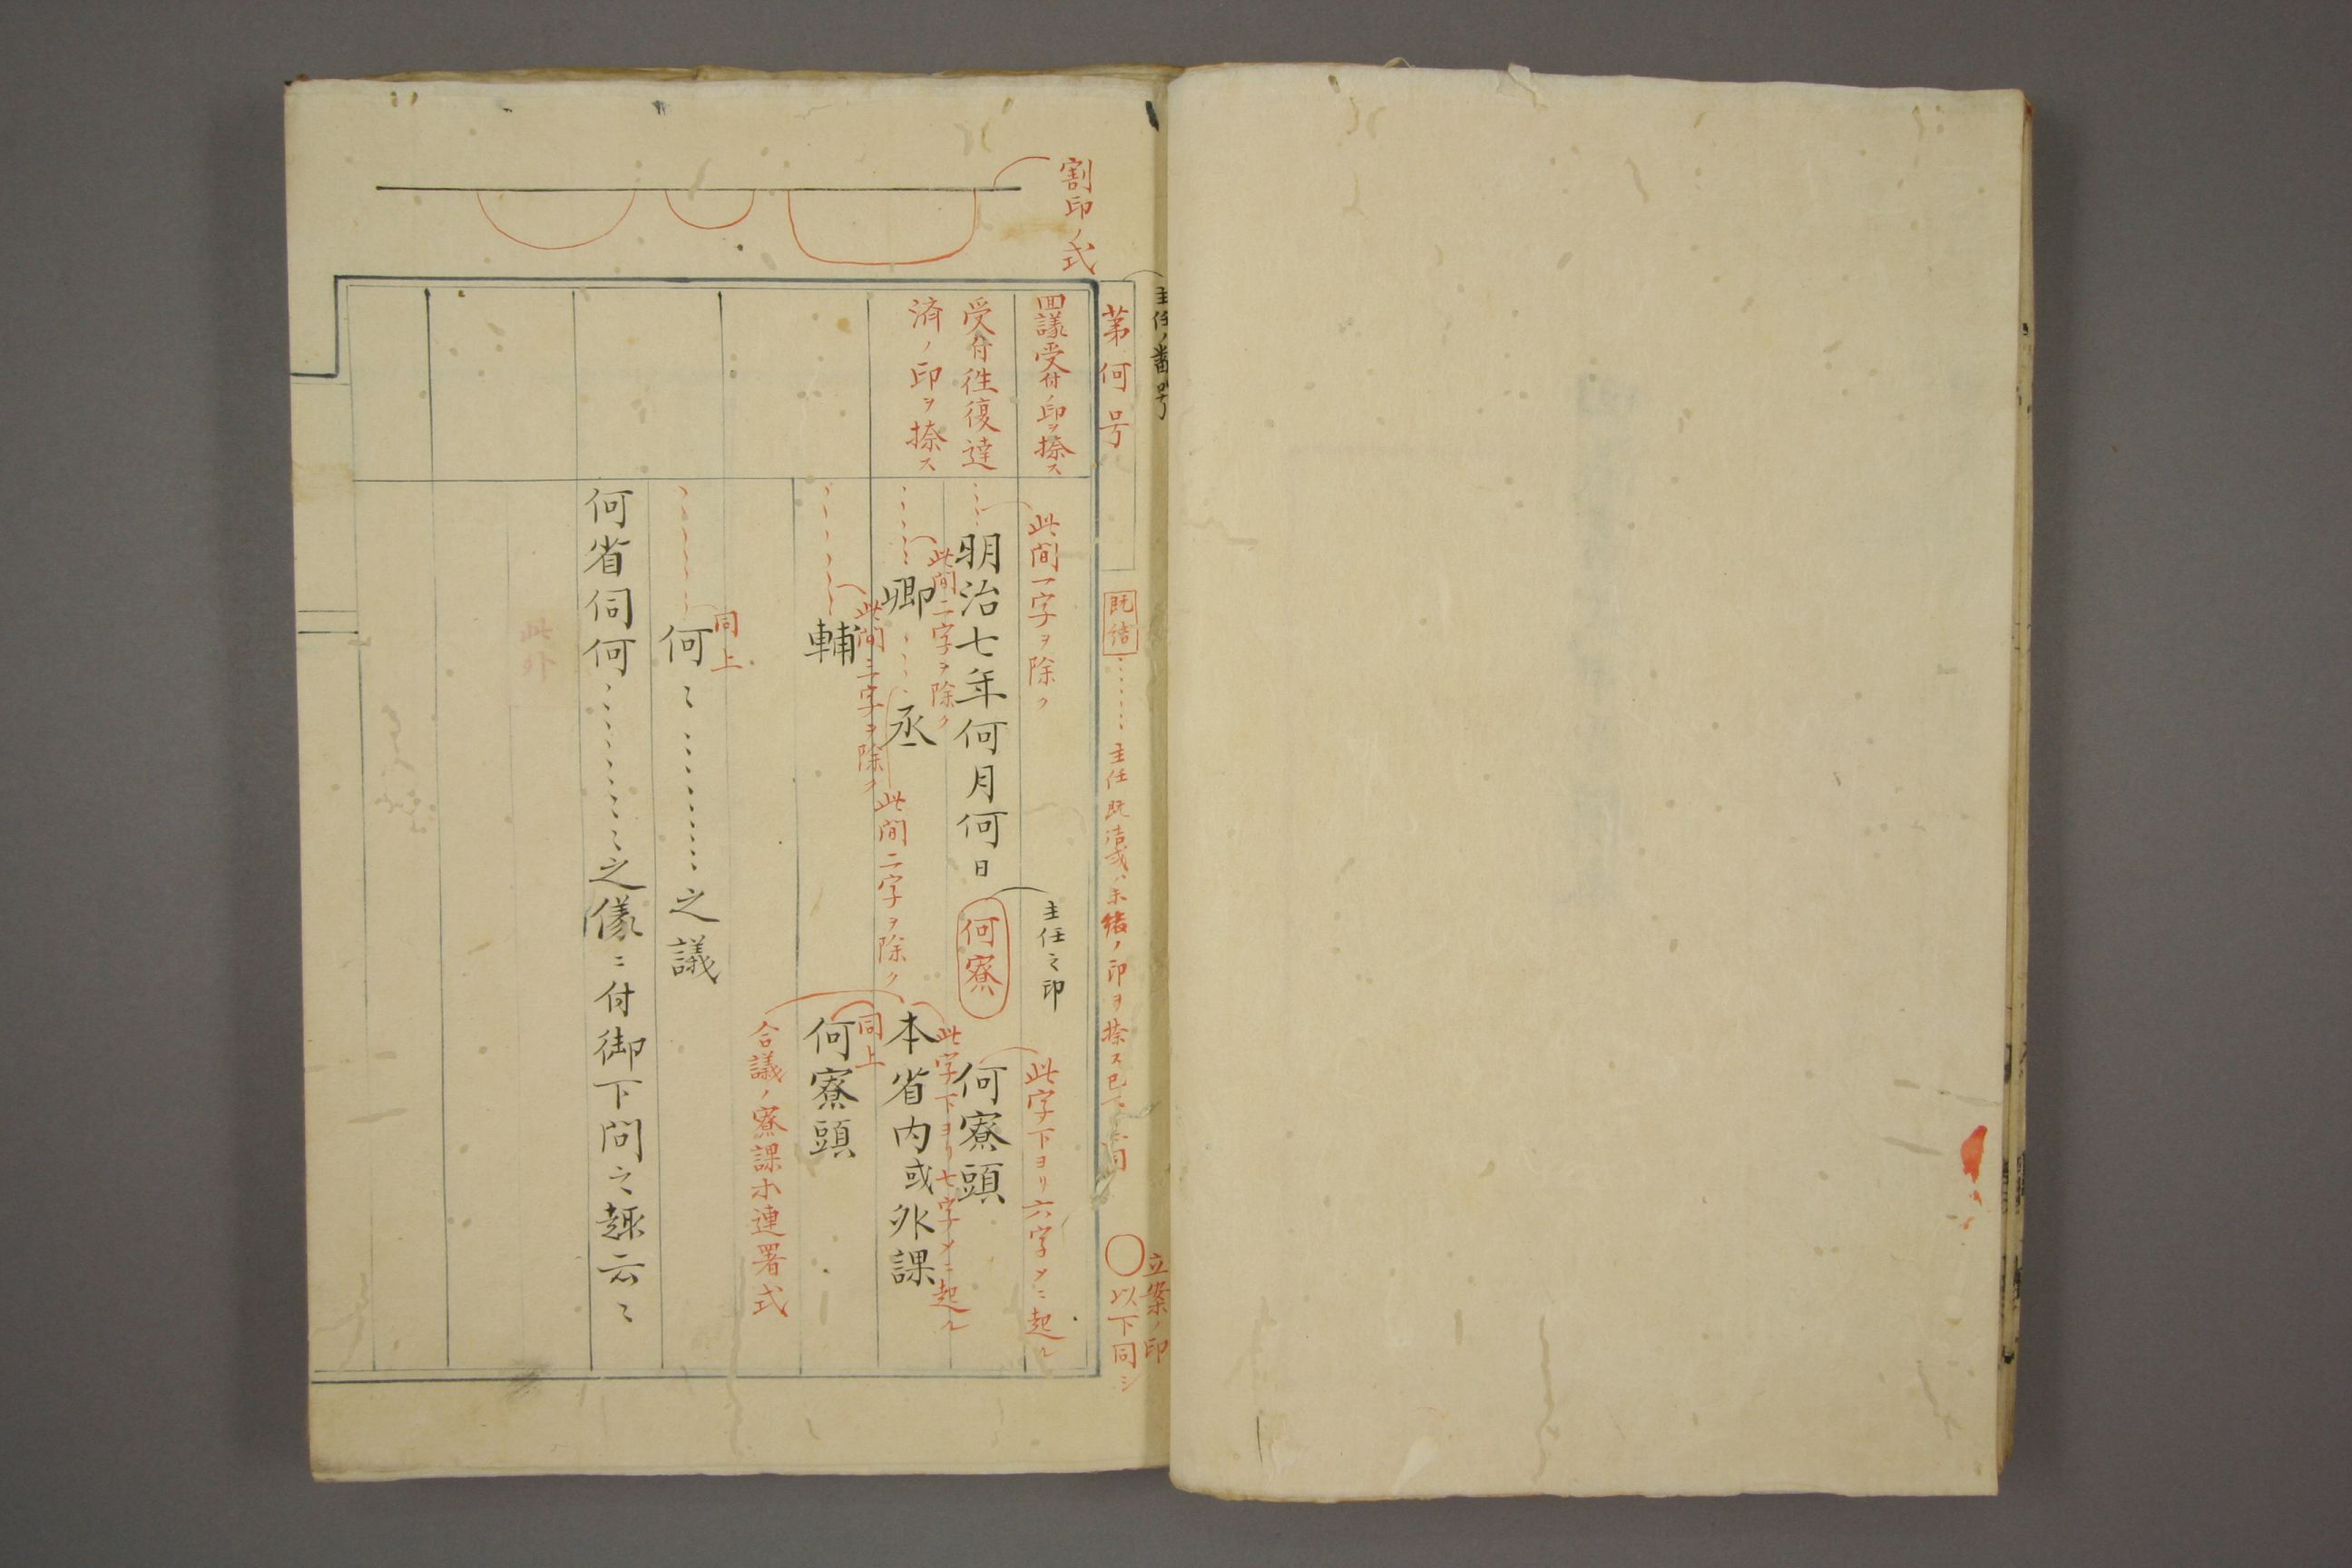 主任ノ番号
立案ノ印
第何号
既結
主任既済或ハ未緒ノ印ヲ捺ス
〇以下同シ
割印ノ式
回議受付ノ印ヲ捺ス
此間一字ヲ除ク
主任之印
此字下ヨリ六字メニ起ル
受付徃復達
明治七年何月何日
何寮
何寮頭
済ノ印ヲ捺ス
此間二字ヲ除ク
此字下ヨリ七字メニ起ル
卿
丞
本省内或外課
此間二字ヲ除ク
此間三字ヲ除ク
同上
輔
何寮頭
合議ノ寮課ホ連署式
同上
何〻、、、、、、之議
何省伺何、、、、、、之儀ニ付御下問之趣云〻